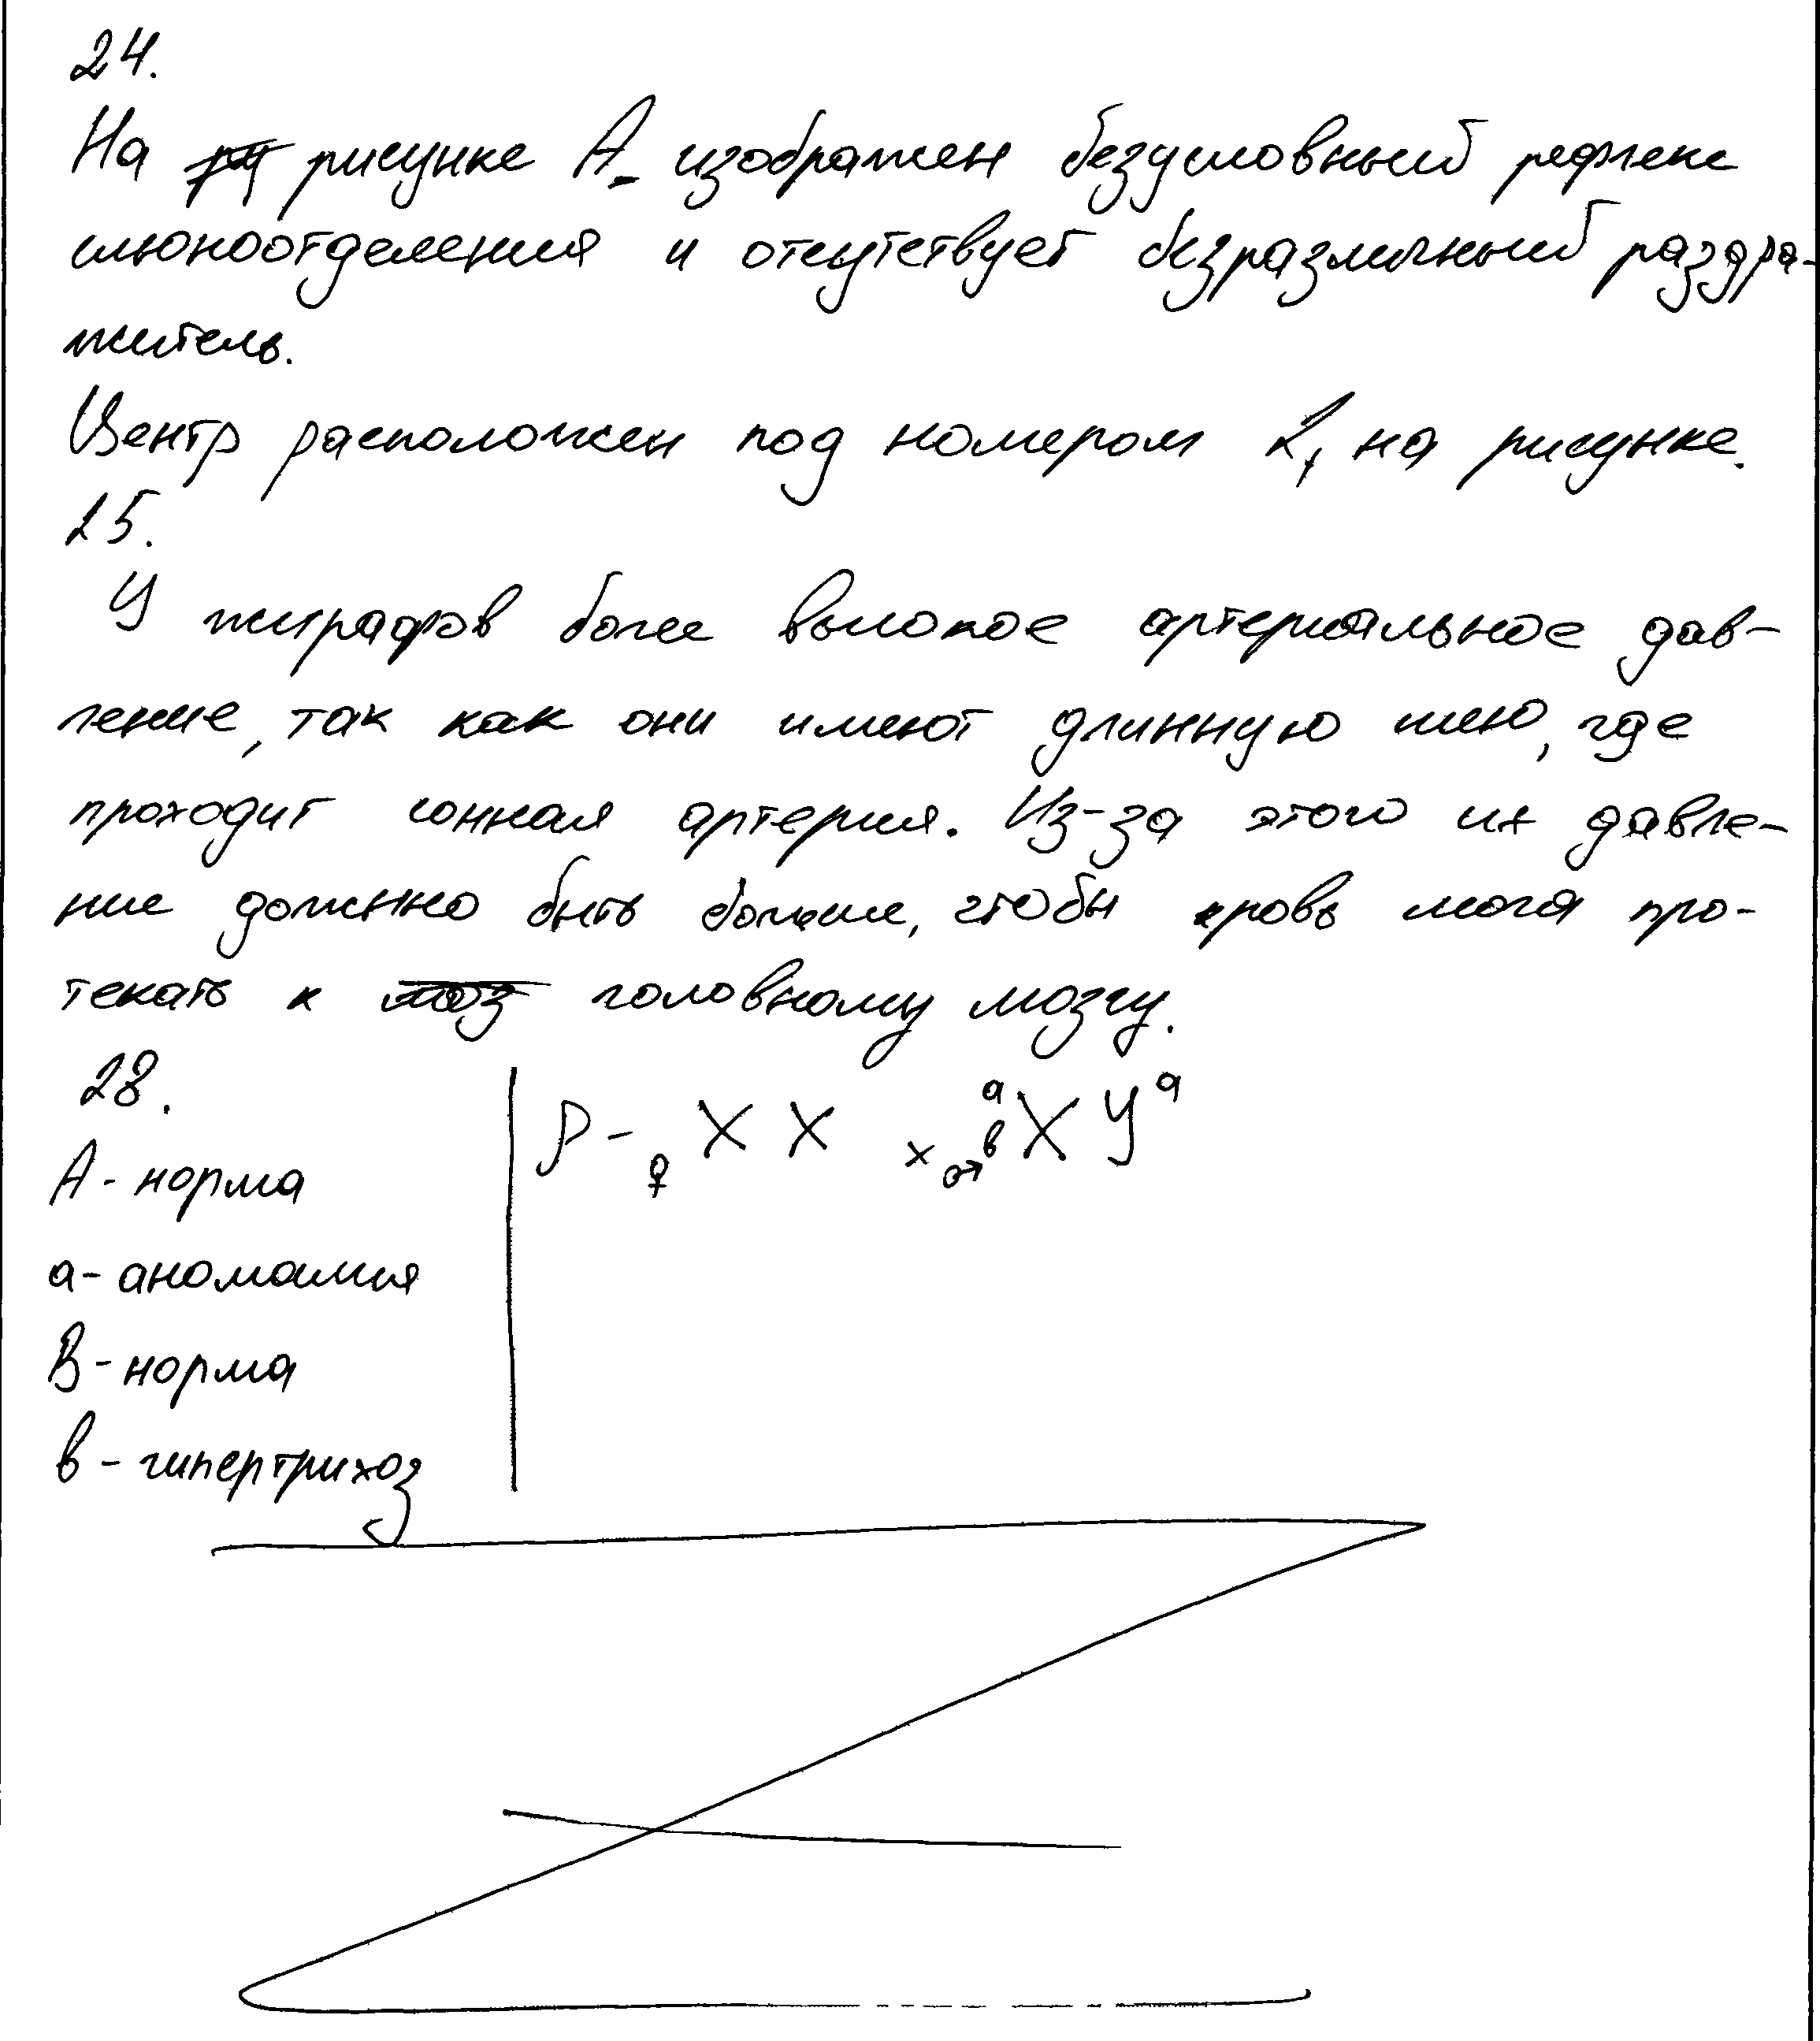 24.
На рисунке А. изображен безусловный рефлекс
слюноотделения и отсутствует безразличный раздра-
житель.
Центр расположен под номером 2, на рисунке.
25.
У жирафов более высокое артериальное дав-
ление, так как они имеют длинную шею, где
проходит сонная артерия. Из-за этого их давле-
ние должнно быть больше, чтобы кровь могла про-
текать к головному мозгу.
28.
P - ♀ X X × ♂ ᵃᵦX Yᵃ
А - норма
а - аномалия
В - норма
в - гипертрихоз